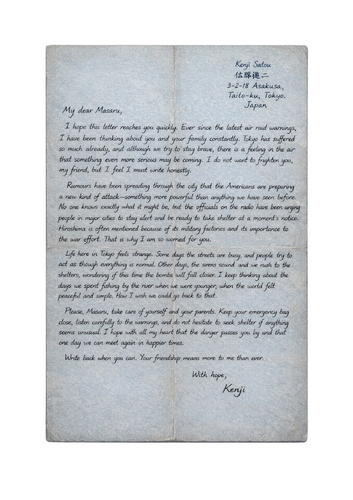 Kenji Satou
3-2-18 Asakusa,
Taito-ku, Tokyo.
Japan
My dear Masaru,
I hope this letter reaches you quickly. Ever since the latest air raid warnings,
I have been thinking about you and your family constantly. Tokyo has suffered
so much already, and although we try to stay brave, there is a feeling in the air
that something even more serious may be coming. I do not want to frighten you,
my friend, but I feel I must write honestly.
Rumours have been spreading through the city that the Americans are preparing
a new kind of attack—something more powerful than anything we have seen before.
No one knows exactly what it might be, but the officials on the radio have been urging
people in major cities to stay alert and be ready to take shelter at a moment's notice.
Hiroshima is often mentioned because of its military factories and its importance to
the war effort. That is why I am so worried for you.
Life here in Tokyo feels strange. Some days the streets are busy, and people try to
act as though everything is normal. Other days, the sirens sound and we rush to the
shelters, wondering if this time the bombs will fall closer. I keep thinking about the
days we spent fishing by the river when we were younger, when the world felt
peaceful and simple. How I wish we could go back to that.
Please, Masaru, take care of yourself and your parents. Keep your emergency bag
close, listen carefully to the warnings, and do not hesitate to seek shelter if anything
seems unusual. I hope with all my heart that the danger passes you by and that
one day we can meet again in happier times.
Write back when you can. Your friendship means more to me than ever.
With hope,
Kenji